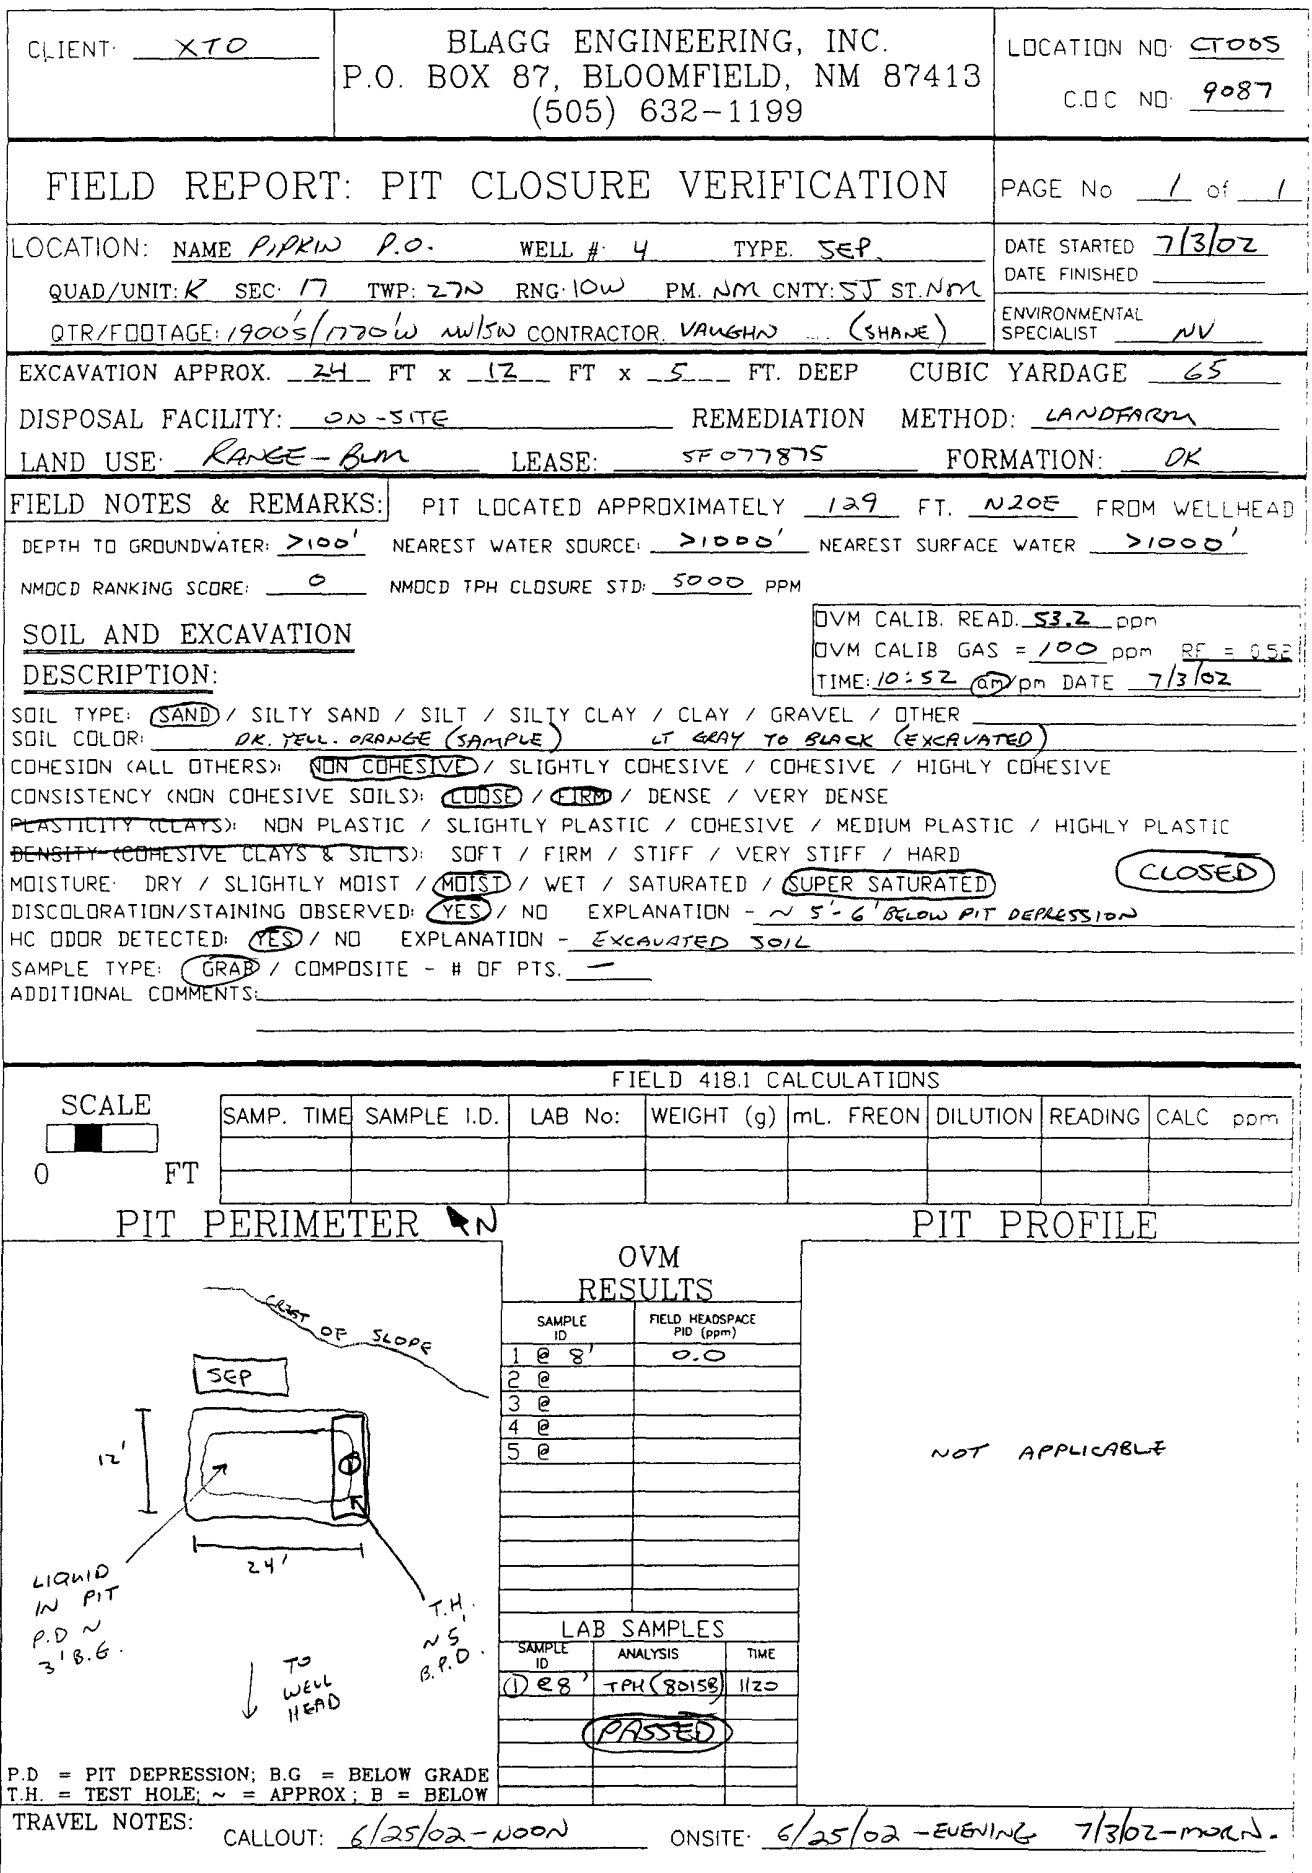 CLIENT: XTO
BLAGG ENGINEERING, INC.
P.O. BOX 87, BLOOMFIELD, NM 87413
(505) 632-1199
LOCATION NO: CT005
C.O.C NO: 9087
FIELD REPORT: PIT CLOSURE VERIFICATION
PAGE No 1 of 1
LOCATION: NAME PIPKIN P.O. WELL #: 4 TYPE. SEP.
DATE STARTED 7/3/02
DATE FINISHED
QUAD/UNIT: K SEC: 17 TWP: 27N RNG: 10W PM. NM CNTY: SJ ST. NM
QTR/FOOTAGE: 1900'S/1770'W NW/SW CONTRACTOR. VAUGHN (SHANE)
ENVIRONMENTAL
SPECIALIST NV
EXCAVATION APPROX. 24 FT x 12 FT x 5 FT. DEEP CUBIC YARDAGE 65
DISPOSAL FACILITY: ON-SITE REMEDIATION METHOD: LANDFARM
LAND USE: RANGE-BLM LEASE: SF 077875 FORMATION: DK
FIELD NOTES & REMARKS: PIT LOCATED APPROXIMATELY 129 FT. N20E FROM WELLHEAD
DEPTH TO GROUNDWATER: >100' NEAREST WATER SOURCE: >1000' NEAREST SURFACE WATER >1000'
NMOCD RANKING SCORE: 0 NMOCD TPH CLOSURE STD: 5000 PPM
SOIL AND EXCAVATION
DESCRIPTION:
OVM CALIB. READ. 53.2 ppm
OVM CALIB GAS = 100 ppm RF = 0.52
TIME: 10:52 am/pm DATE 7/3/02
SOIL TYPE: SAND / SILTY SAND / SILT / SILTY CLAY / CLAY / GRAVEL / OTHER
SOIL COLOR: DK. YELL. ORANGE (SAMPLE) LT GRAY TO BLACK (EXCAVATED)
COHESION (ALL OTHERS): NON COHESIVE / SLIGHTLY COHESIVE / COHESIVE / HIGHLY COHESIVE
CONSISTENCY (NON COHESIVE SOILS): LOOSE / FIRM / DENSE / VERY DENSE
PLASTICITY (CLAYS): NON PLASTIC / SLIGHTLY PLASTIC / COHESIVE / MEDIUM PLASTIC / HIGHLY PLASTIC
DENSITY (COHESIVE CLAYS & SILTS): SOFT / FIRM / STIFF / VERY STIFF / HARD
MOISTURE: DRY / SLIGHTLY MOIST / MOIST / WET / SATURATED / SUPER SATURATED
CLOSED
DISCOLORATION/STAINING OBSERVED: YES / NO EXPLANATION - ~ 5'-6' BELOW PIT DEPRESSION
HC ODOR DETECTED: YES / NO EXPLANATION - EXCAVATED SOIL
SAMPLE TYPE: GRAB / COMPOSITE - # OF PTS. —
ADDITIONAL COMMENTS:
FIELD 418.1 CALCULATIONS
SCALE
0 FT
SAMP. TIME SAMPLE I.D. LAB No: WEIGHT (g) mL. FREON DILUTION READING CALC ppm
PIT PERIMETER N
PIT PROFILE
CREST OF SLOPE
SEP
12'
24'
LIQUID
IN PIT
P.D ~
3' B.G.
T.H.
~ 5'
B.P.D.
TO
WELL
HEAD
OVM
RESULTS
SAMPLE ID FIELD HEADSPACE PID (ppm)
1 @ 8' 0.0
2 @
3 @
4 @
5 @
NOT APPLICABLE
LAB SAMPLES
SAMPLE ID ANALYSIS TIME
① @8' TPH (8015B) 1120
PASSED
P.D = PIT DEPRESSION; B.G = BELOW GRADE
T.H. = TEST HOLE; ~ = APPROX; B = BELOW
TRAVEL NOTES: CALLOUT: 6/25/02-NOON ONSITE: 6/25/02-EVENING 7/3/02-MORN.